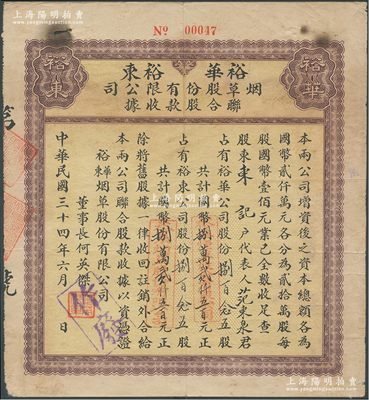 上海陽明拍賣
www.yangming.com
No 00047
裕華
裕東
烟草股份有限公司
聯合股款收據
裕華
裕東
本兩公司增資後之資本總額各為
國幣貳仟萬元各分為貳拾萬股每
股國幣壹佰元業已全數收足查
股東東記户代表人范東泉君
占有裕華公司股份捌百念五股
共計國幣捌萬貳仟五百元正
占有裕東公司股份捌百念五股
共計國幣捌萬貳仟五百元正
除將舊股據一律收回註銷外合給
本兩公司聯合股款收據以資憑證
裕華
裕東
烟草股份有限公司
董事長何英傑
中華民國三十四年六月 日
第
號
上海陽明拍賣